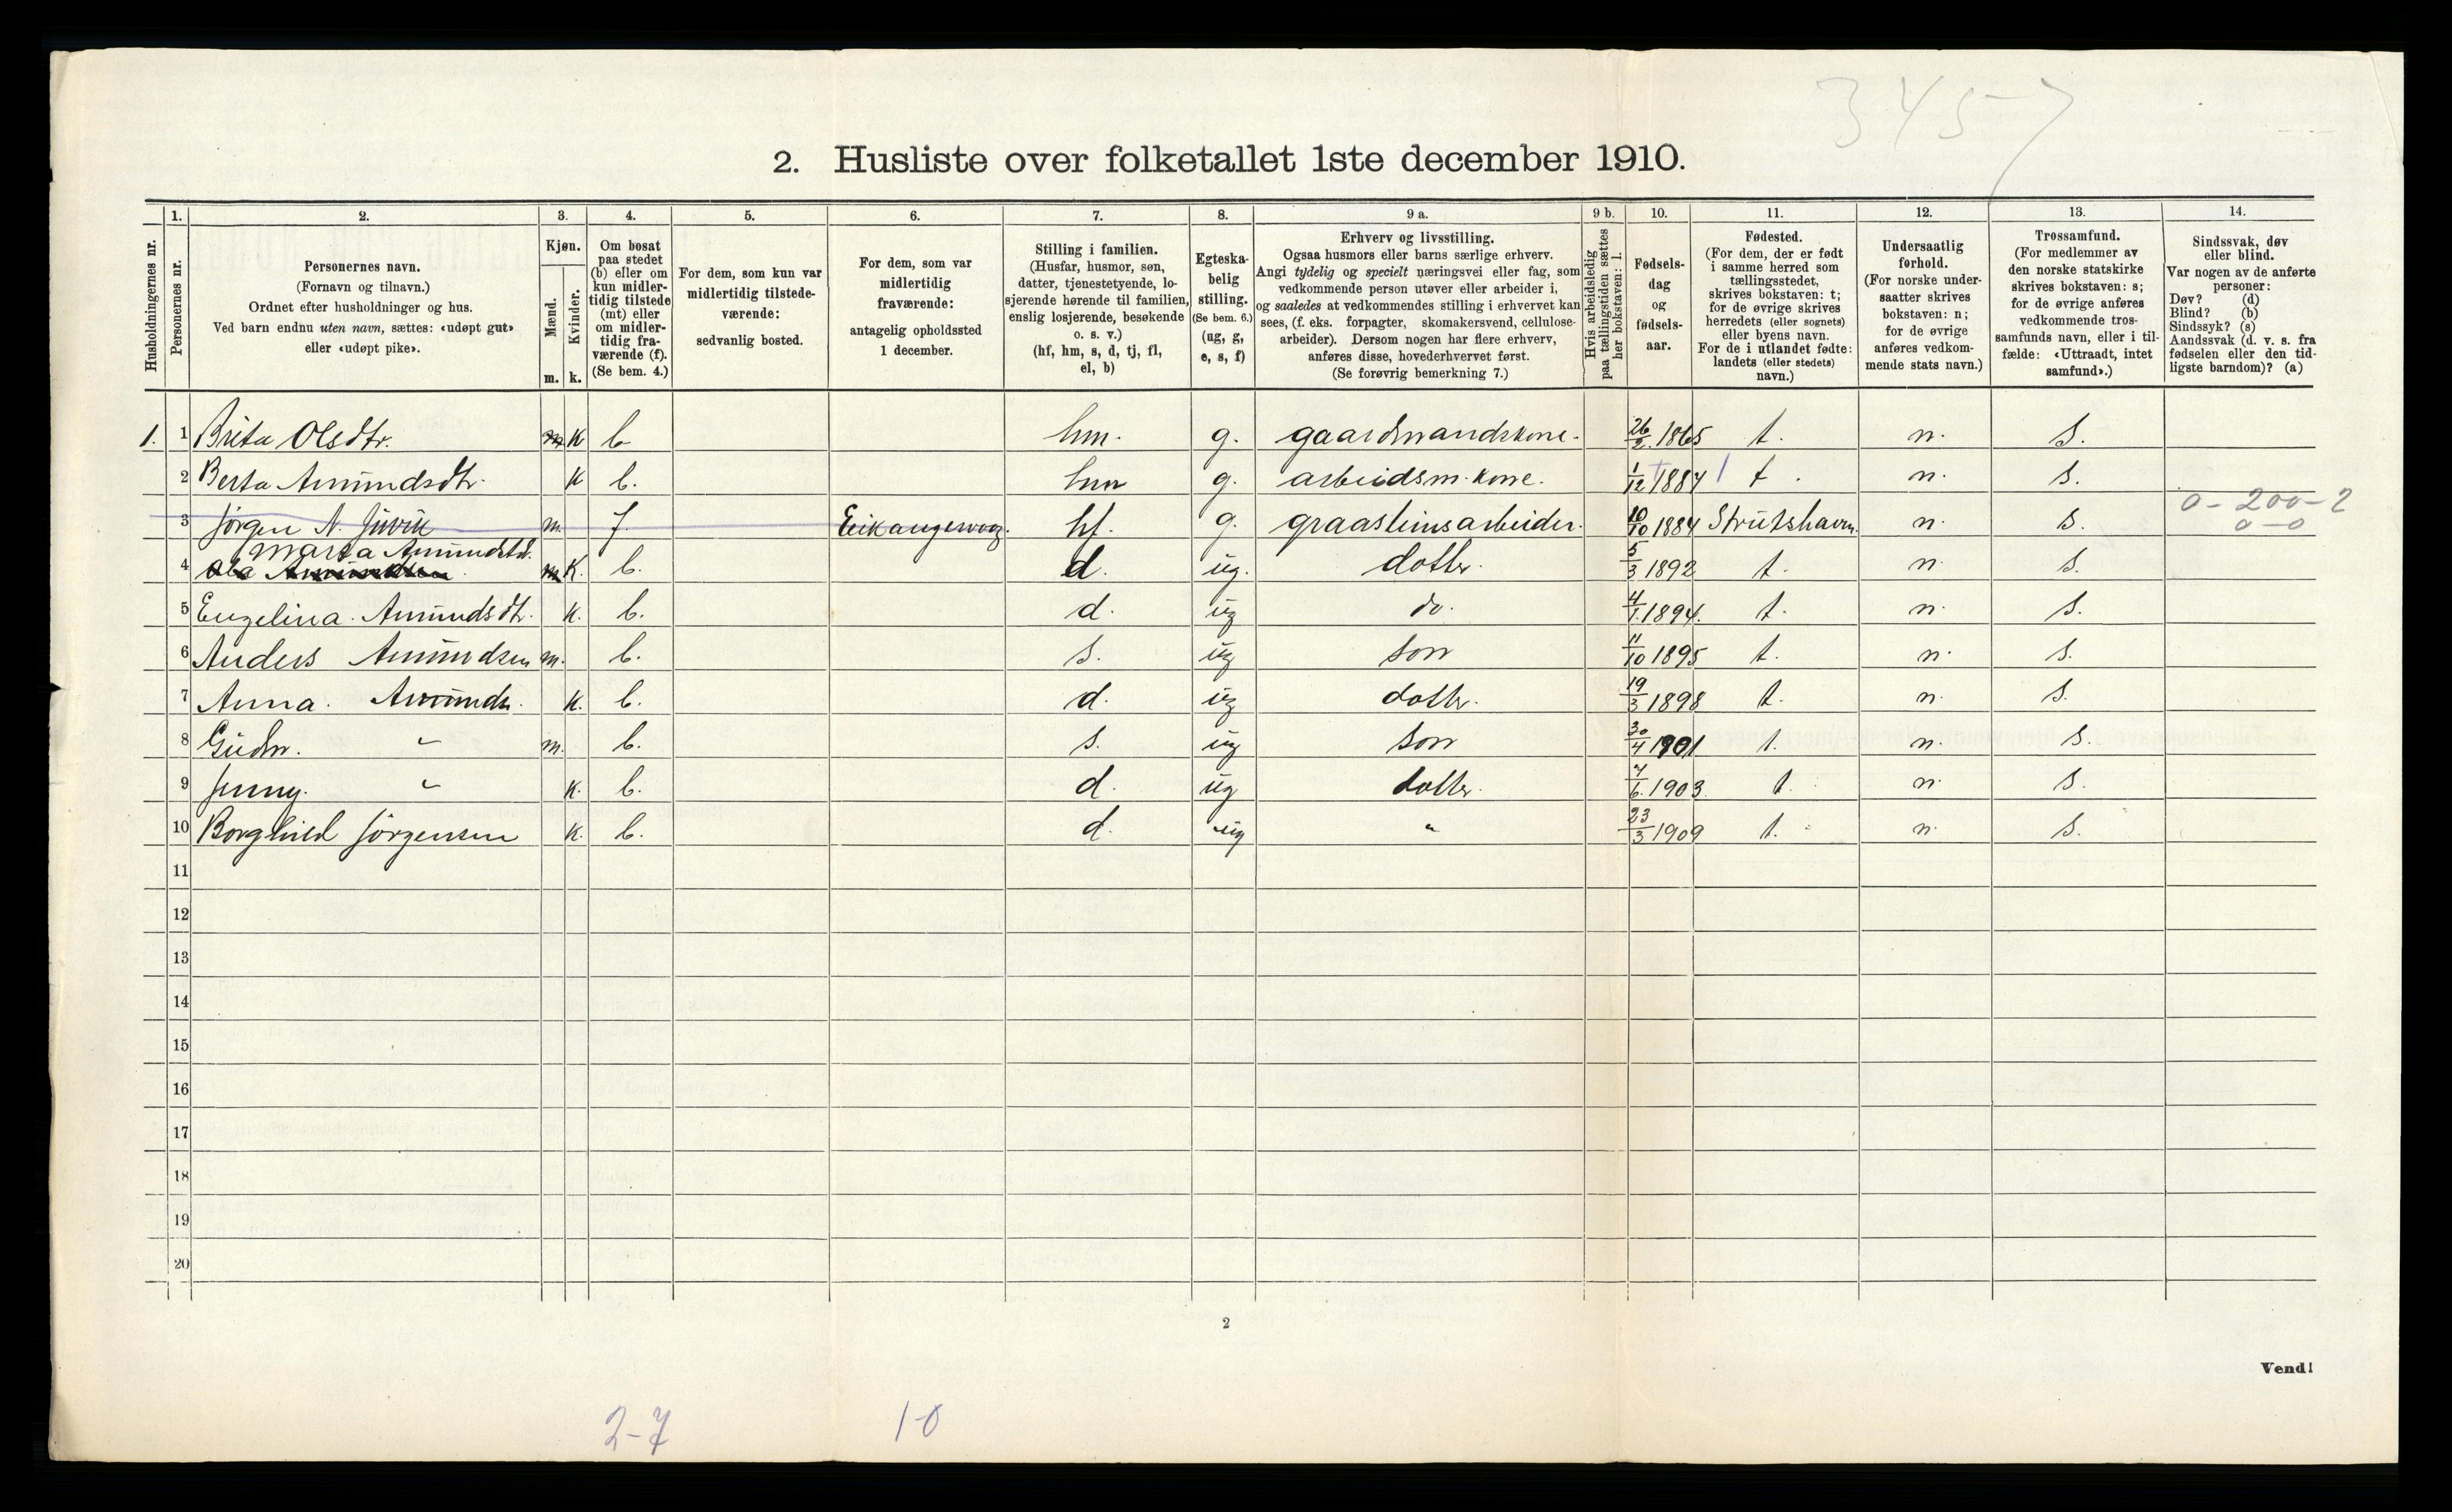 3457
2. Husliste over folketallet 1ste december 1910.
Husholdningernes nr.
1. Personernes nr.
2. Personernes navn.
(Fornavn og tilnavn.)
Ordnet efter husholdninger og hus.
Ved barn endnu uten navn, sættes: «udøpt gut»
eller «udøpt pike».
3. Kjøn.
Mænd. m.
Kvinder. k.
4. Om bosat
paa stedet
(b) eller om
kun midler-
tidig tilstede
(mt) eller
om midler-
tidig fra-
værende (f).
(Se bem. 4.)
5. For dem, som kun var
midlertidig tilstede-
værende:
sedvanlig bosted.
6. For dem, som var
midlertidig
fraværende:
antagelig opholdssted
1 december.
7. Stilling i familien.
(Husfar, husmor, søn,
datter, tjenestetyende, lo-
sjerende hørende til familien,
enslig losjerende, besøkende
o. s. v.)
(hf, hm, s, d, tj, fl,
el, b)
8. Egteska-
belig
stilling.
(Se bem. 6.)
(ug, g,
e, s, f)
9 a. Erhverv og livsstilling.
Ogsaa husmors eller barns særlige erhverv.
Angi tydelig og specielt næringsvei eller fag, som
vedkommende person utøver eller arbeider i,
og saaledes at vedkommendes stilling i erhvervet kan
sees, (f. eks. forpagter, skomakersvend, cellulose-
arbeider). Dersom nogen har flere erhverv,
anføres disse, hovederhvervet først.
(Se forøvrig bemerkning 7.)
9 b. Hvis arbeidsledig
paa tællingstiden sættes
her bokstaven: l.
10. Fødsels-
dag
og
fødsels-
aar.
11. Fødested.
(For dem, der er født
i samme herred som
tællingsstedet,
skrives bokstaven: t;
for de øvrige skrives
herredets (eller sognets)
eller byens navn.
For de i utlandet fødte:
landets (eller stedets)
navn.)
12. Undersaatlig
forhold.
(For norske under-
saatter skrives
bokstaven: n;
for de øvrige
anføres vedkom-
mende stats navn.)
13. Trossamfund.
(For medlemmer av
den norske statskirke
skrives bokstaven: s;
for de øvrige anføres
vedkommende tros-
samfunds navn, eller i til-
fælde: «Uttraadt, intet
samfund».)
14. Sindssvak, døv
eller blind.
Var nogen av de anførte
personer:
Døv? (d)
Blind? (b)
Sindssyk? (s)
Aandssvak (d. v. s. fra
fødselen eller den tid-
ligste barndom)? (a)
1. 1 Brita Olsdtr. m K b hm. g. gaardmandskone. 26/2 1865 t. n. s.
2 Berta Amundsdtr. K b. hm g. arbeidsm. kone. 1/12 1884 t. n. s.
3 Jørgen N. Juvik m. f. Eikangervaag. hf. g. graasteinsarbeider. 10/10 1884 Strutshavn. n. s. 0-200-2
0-0
Marta Amundsdt.
4 Ola Amundsen m K. b. d. ug. dotter. 5/3 1892 t. n. s.
5 Engelina Amundsdt. K. b. d. ug do. 4/1 1894. t. n. s.
6 Anders Amundsen m. b. s. ug son 11/10 1895 t. n. s.
7 Anna. Amunds. K. b. d. ug dotter. 19/3 1898 t. n. s.
8 Gudm. " m. b. s. ug son 30/4 1901 t. n. s.
9 Jenny. " K. b. d. ug dotter. 7/6. 1903. t. n. s.
10 Borghild Jørgensen K. b. d. ug " 23/3 1909 t. n. s.
11
12
13
14
15
16
17
18
19
20
2
Vend!
2-7 10